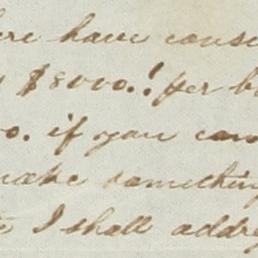 here have conse
$8000.! per b
00. if you can
make something
I shall addre